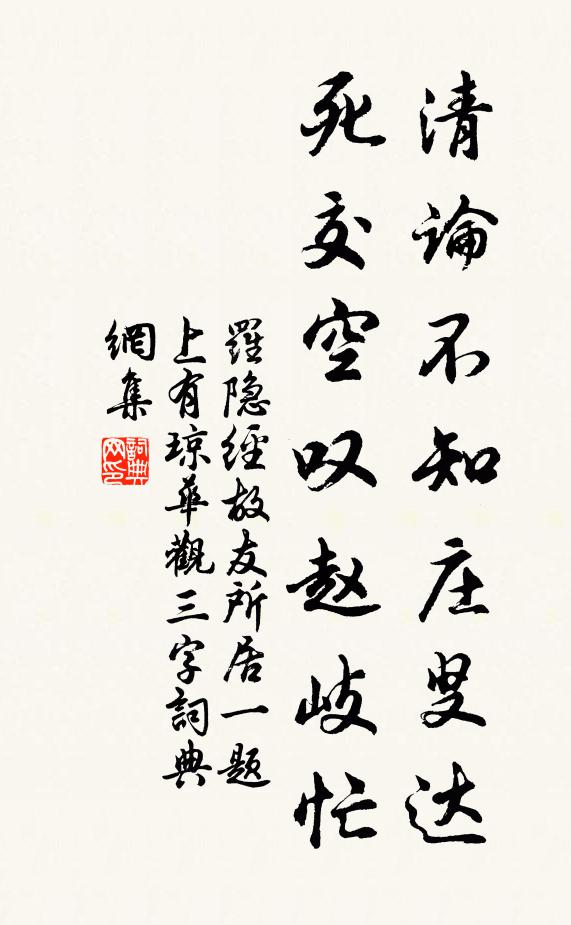 清論不知庄叟达
死交空叹赵岐忙
羅隐經故友所居一題
上有琼華觀三字詞典
網集
詞典
网印